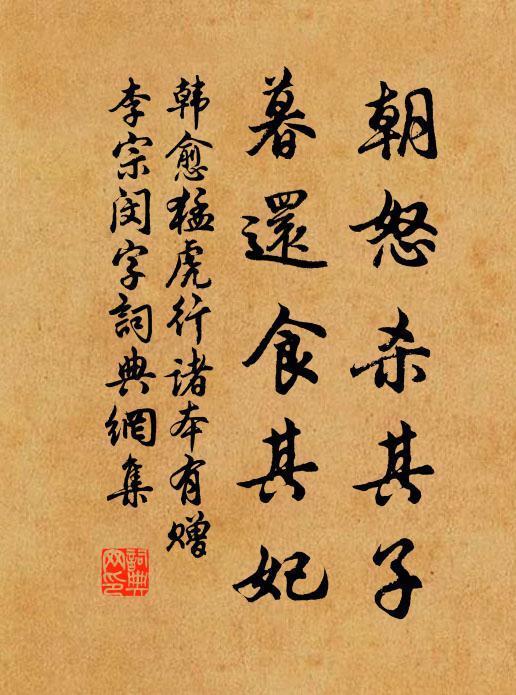 朝怒杀其子
暮還食其妃
韩愈猛虎行诸本有赠
李宗闵字詞典網集
詞典
网印